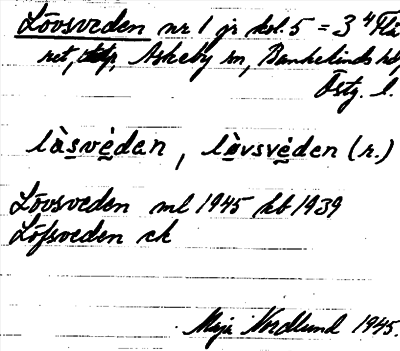 Lövsveden nr 1 jr kol. 5 = 3 4
ret, Askeby sn, Bankekinds hd
Östg. l.
làsvèden, làvsvèden (r.)
Lövsveden ml 1945 kb 1939
Löfsveden ek
Maja Nordlund 1945.